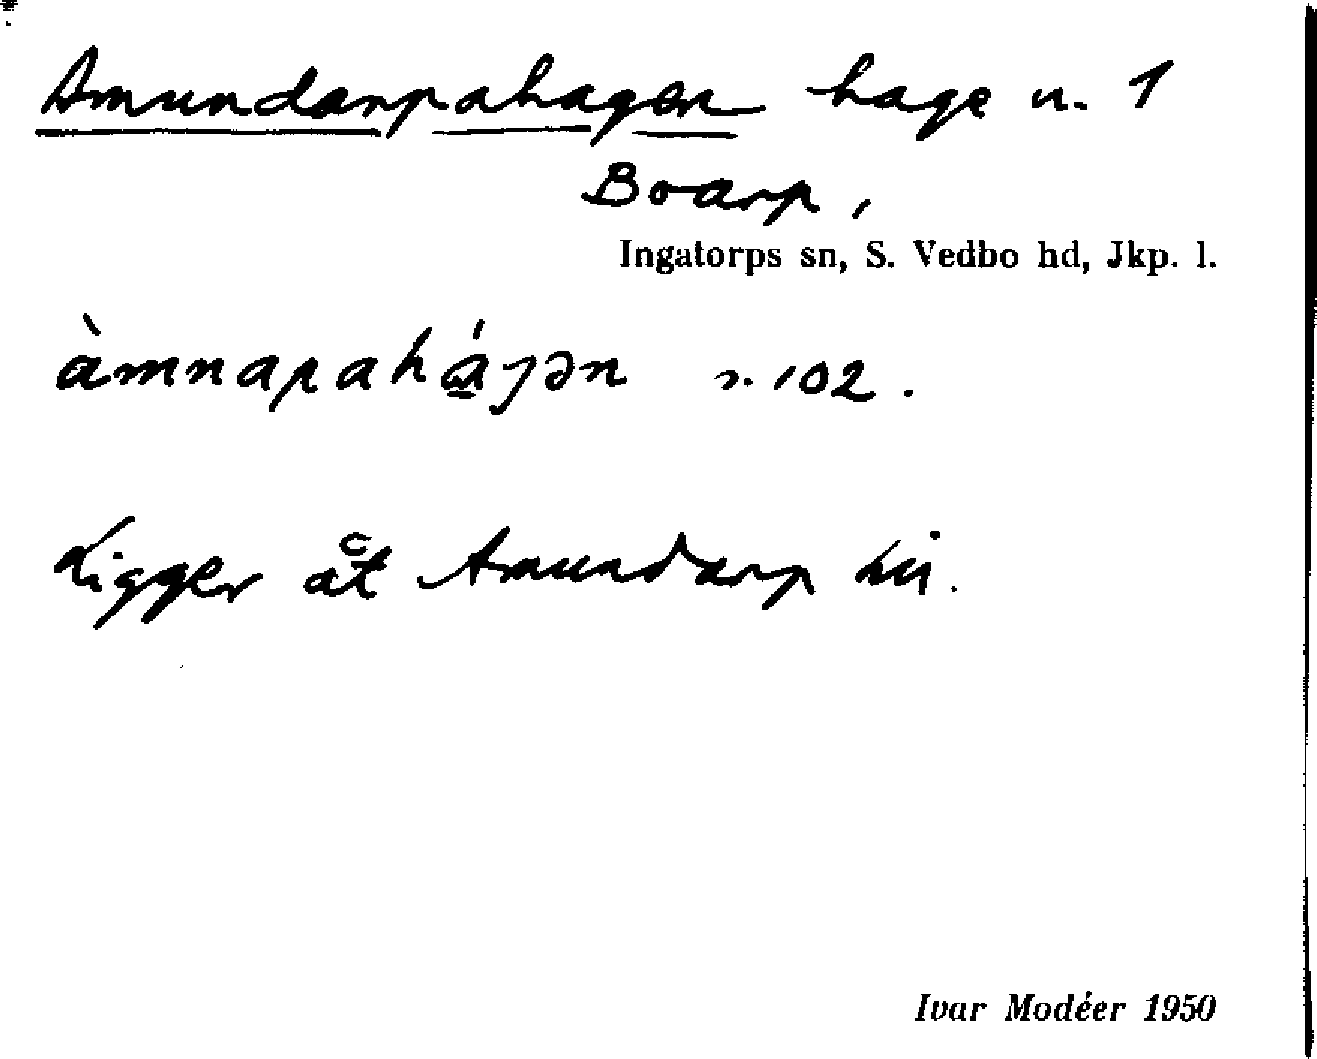 Amundarpahagen hage u. 1
Boarp,
Ingatorps sn, S. Vedbo hd, Jkp. l.
àmnapahájən s. 102.
Ligger åt Amundarp hit.
Ivar Modéer 1950